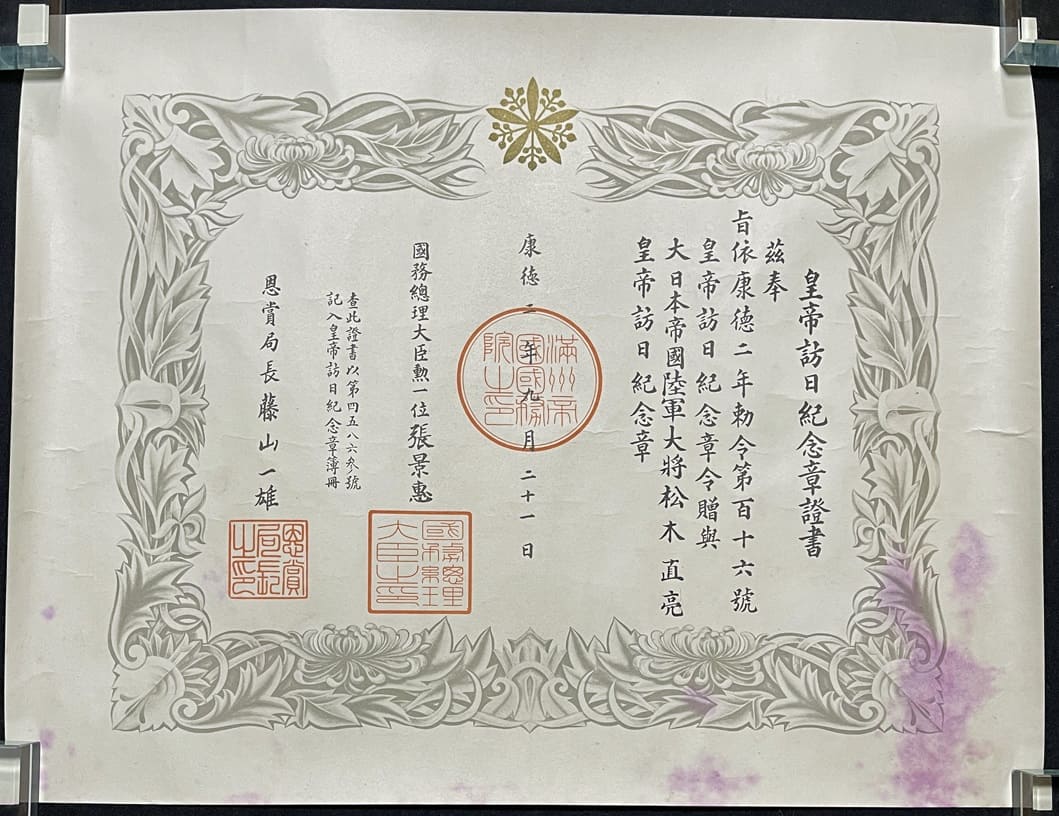 皇帝訪日紀念章證書
茲奉
旨依康德二年勅令第百十六號
皇帝訪日紀念章令贈與
大日本帝國陸軍大將松木 直亮
皇帝訪日紀念章
康德二年九月二十一日
滿州帝
國國務
院之印
國務總理大臣勲一位張景惠
國務總理
大臣之印
查此證書以第四五八六參號
記入皇帝訪日紀念章簿冊
恩賞局長藤山一雄
恩賞
局長
之印